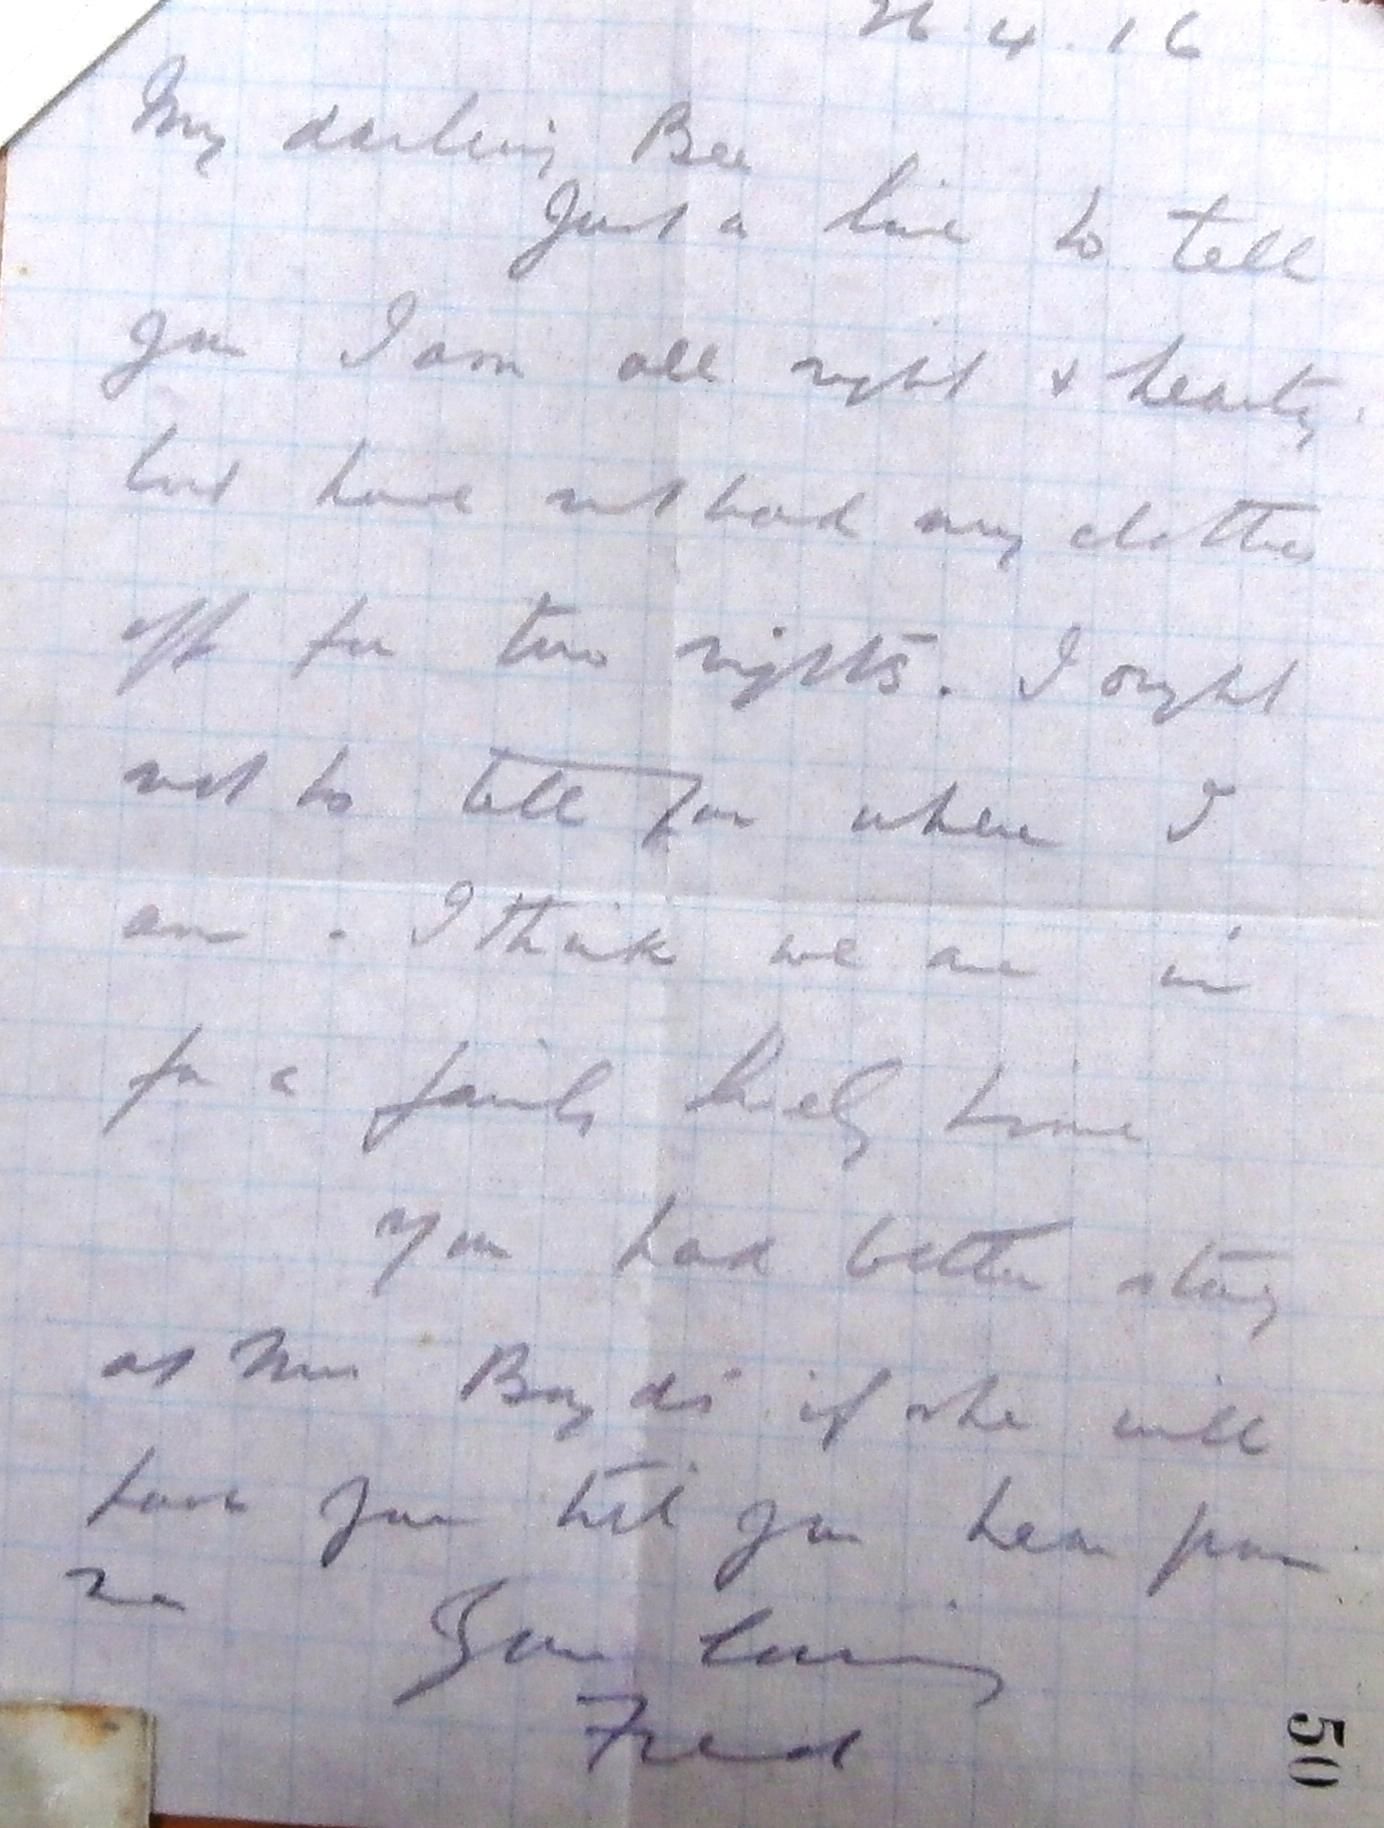 26.4.16
My darling Bee
Just a line to tell
you I am all right & hearty.
but have not had my clothes
off for two nights. I ought
not to tell you where I
am. I think we are in
for a fairly lively time
You had better stay
at Mrs Boyds if she will
have you till you hear from
me
Your loving
Fred
50